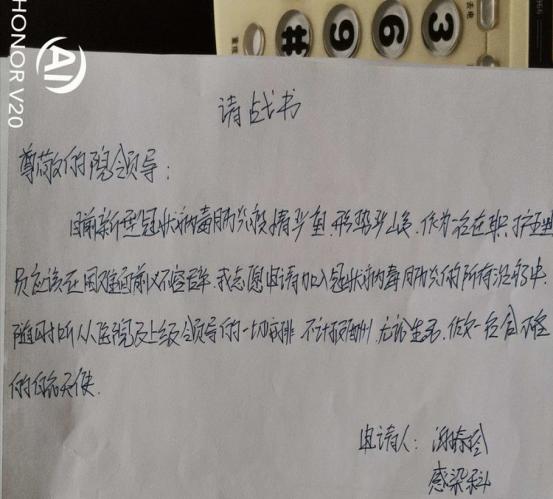 HONOR V20
AI
3
6
9
#
重拨
请战书
尊敬的院领导：
目前新型冠状病毒肺炎疫情严重，形势严峻，作为一名在职护理
员应该在困难面前义不容辞，我志愿申请加入冠状病毒肺炎的所有治疗中，
随时听从医院及上级领导的一切安排，不计报酬，无论生死，做一名合格
的白衣天使。
申请人：
感染科